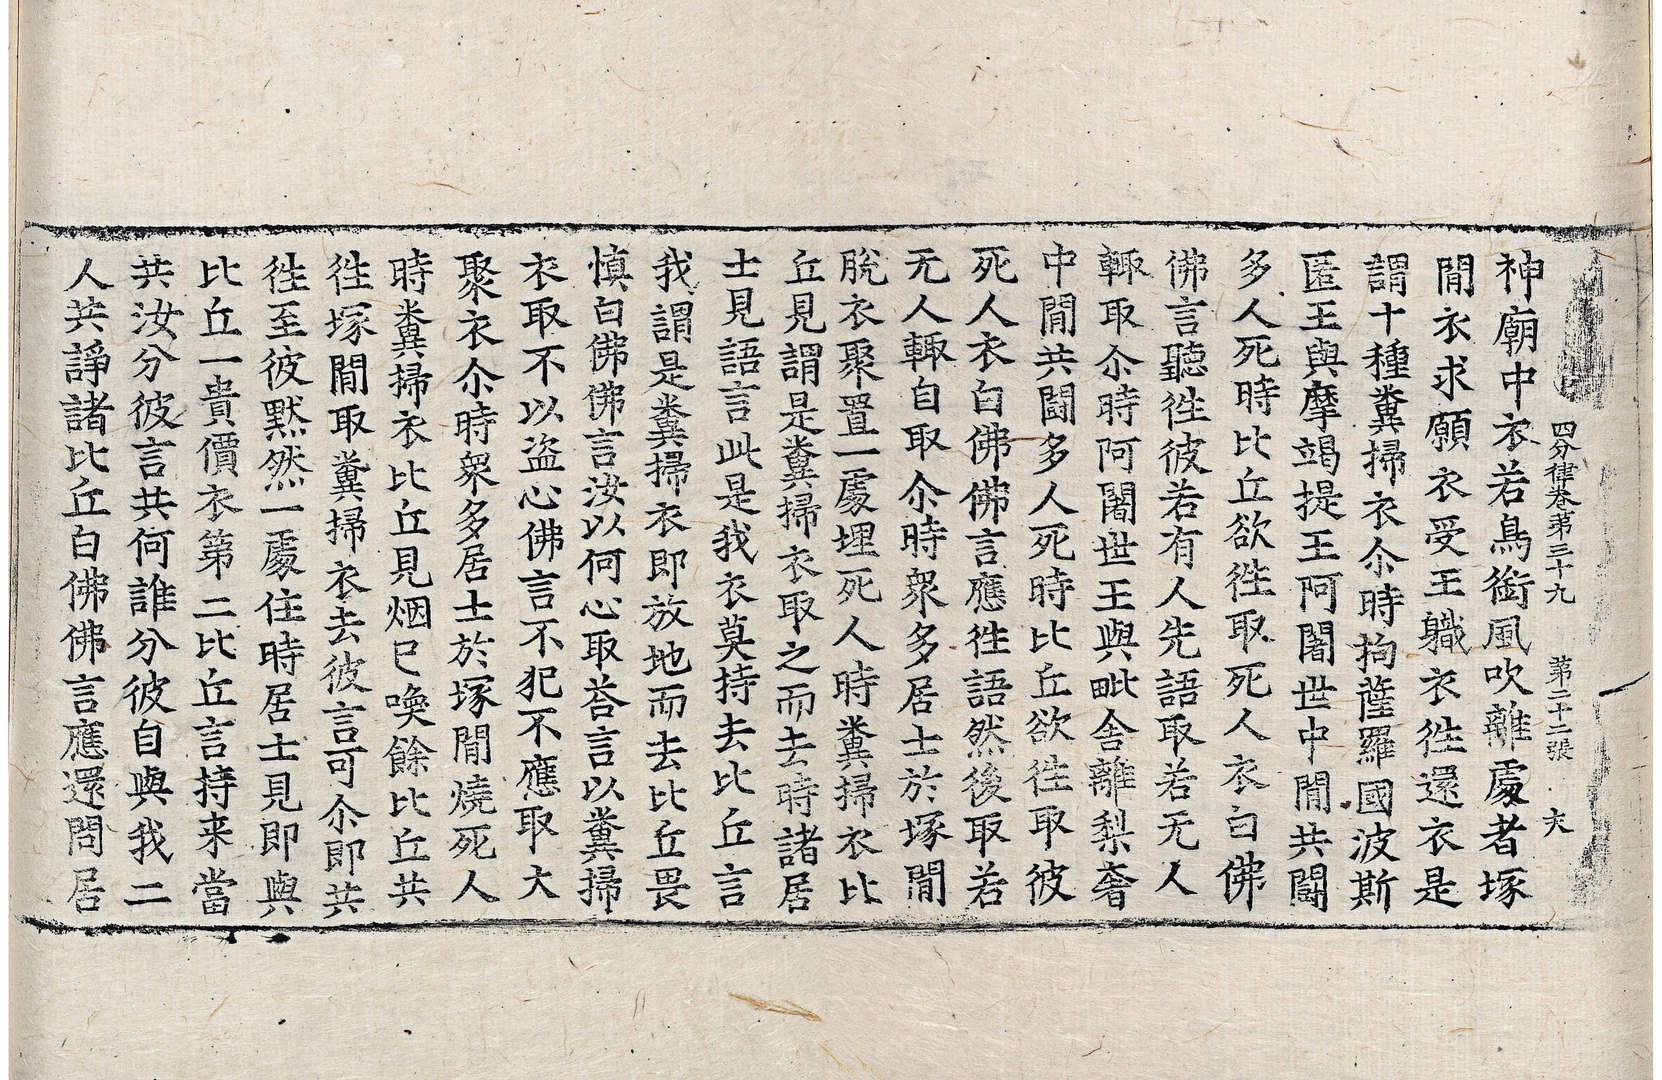 四分律卷第三十九　第二十二張　犬
神廟中衣若鳥銜風吹離處者塚
閒衣求願衣受王職衣往還衣是
謂十種糞掃衣尒時拘薩羅國波斯
匿王與摩竭提王阿闍世中閒共鬪
多人死時比丘欲往取死人衣白佛
佛言聽往彼若有人先語取若无人
輙取尒時阿闍世王與毗舍離梨奢
中閒共鬪多人死時比丘欲往取彼
死人衣白佛佛言應往語然後取若
无人輙自取尒時衆多居士於塚閒
脫衣聚置一處埋死人時糞掃衣比
丘見謂是糞掃衣取之而去時諸居
士見語言此是我衣莫持去比丘言
我謂是糞掃衣即放地而去比丘畏
慎白佛佛言汝以何心取荅言以糞掃
衣取不以盜心佛言不犯不應取大
聚衣尒時衆多居士於塚閒燒死人
時糞掃衣比丘見烟已喚餘比丘共
往塚閒取糞掃衣去彼言可尒即共
往至彼默然一處住時居士見即與
比丘一貴價衣第二比丘言持来當
共汝分彼言共何誰分彼自與我二
人共諍諸比丘白佛佛言應還問居